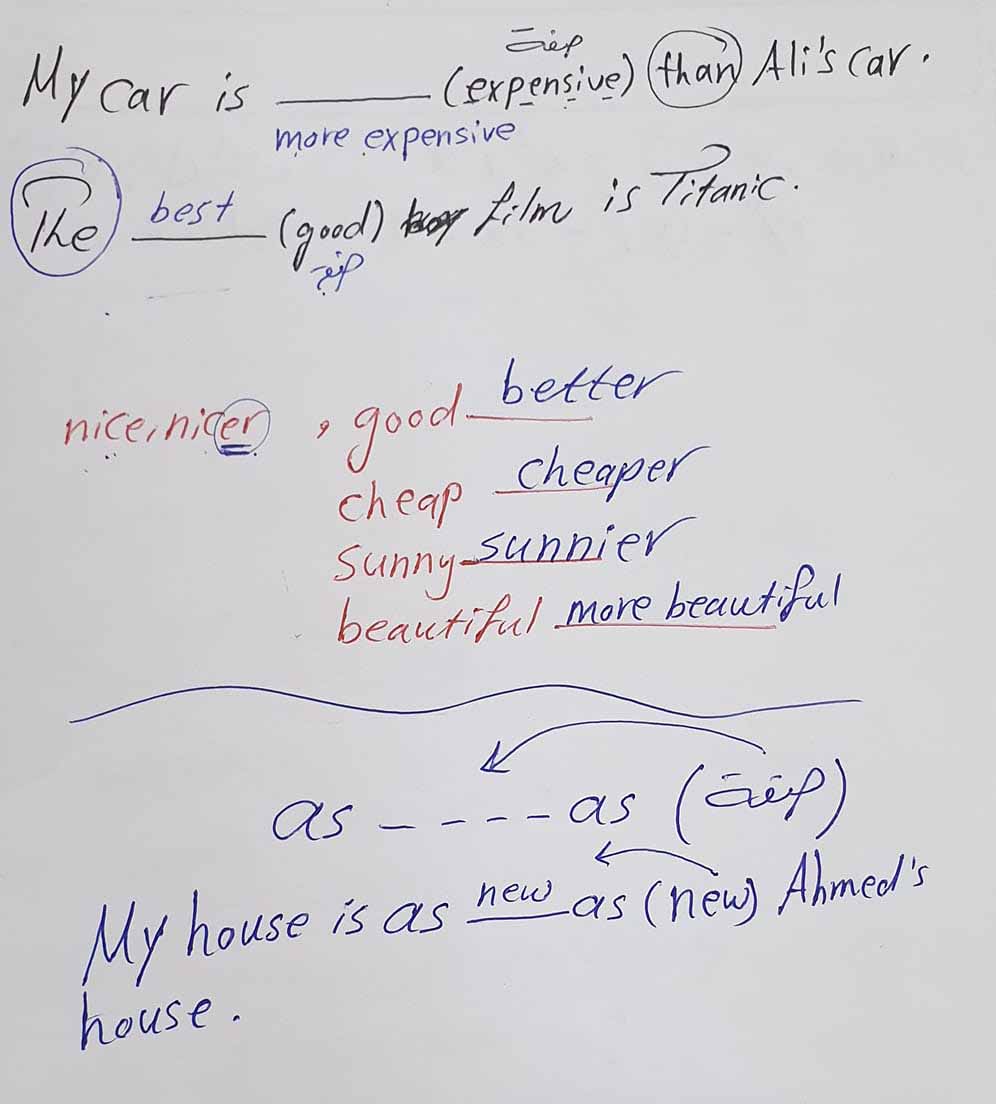 صفة
My car is ______ (expensive) than Ali's car.
more expensive
The best (good) film is Titanic.
صفة
nice, nicer , good better
cheap cheaper
sunny - sunnier
beautiful more beautiful
as - - - - as (صفة)
My house is as new as (new) Ahmed's
house.